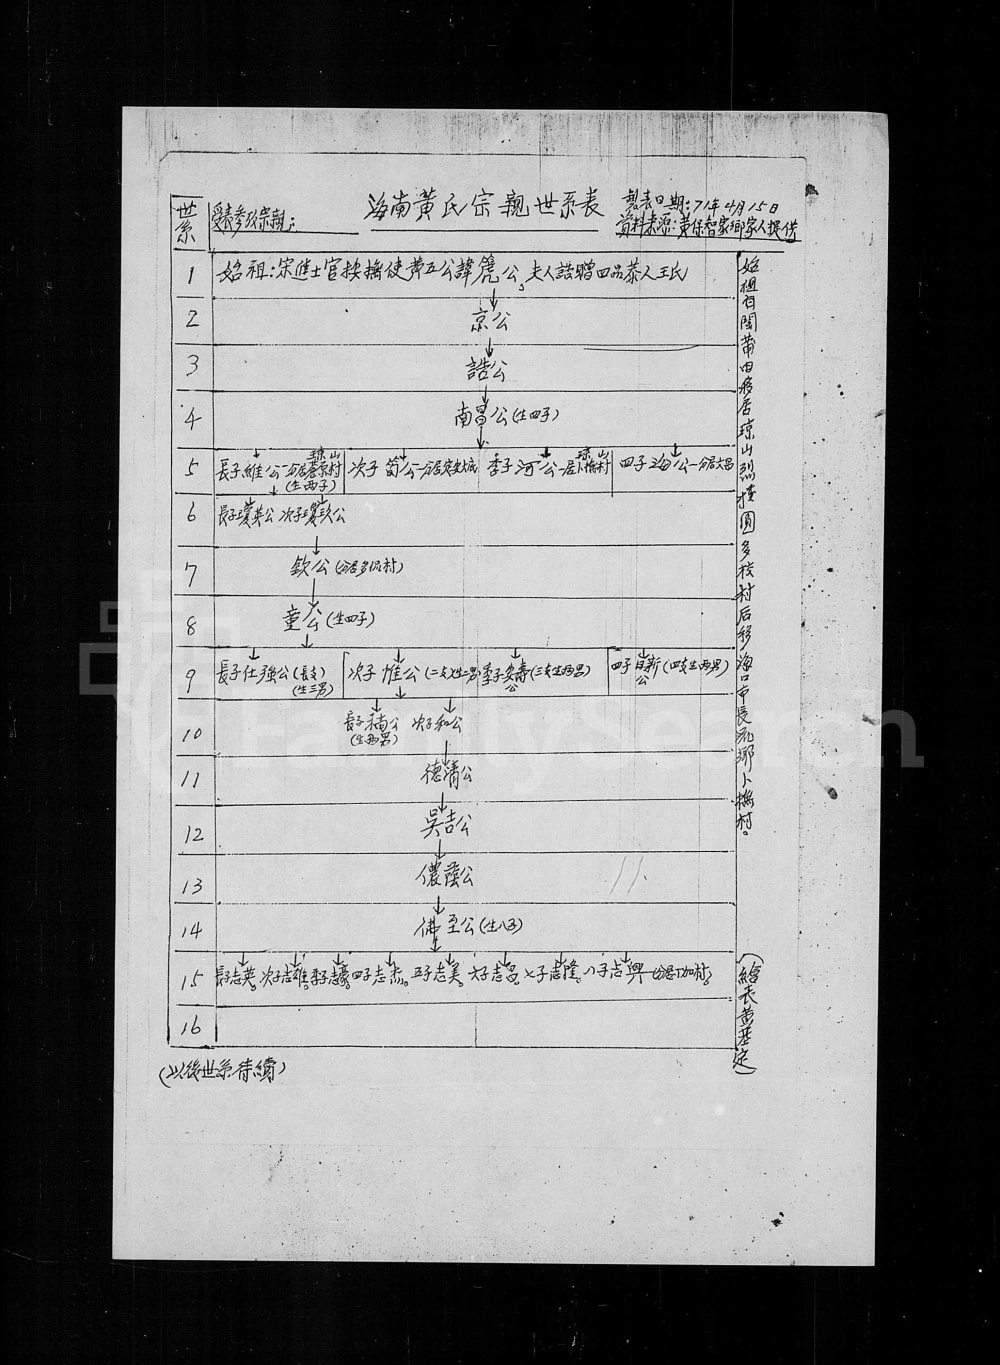 海南黃氏宗親世系表
製表日期:71年4月15日
資料來源:黃保智家鄉家人提供
世系
受表參攷宗親:
1 始祖:宋進士官按撫使黃五公諱篪公,夫人誥贈四品恭人王氏
2 京公
3 誥公
4 南昌公(生四子)
5 長子維公一分居 瓊山 村(生兩子) 次子 荀公一分居定安城 季子 河公一居 瓊山 村 四子 海公一分居文昌
6 長子瓊英公 次子瓊玖公
7 欽公(分居多侃村)
8 童公(生四子)
9 長子仕強公(長支)(生三男) 次子 惟公(二支)(生二男) 季子安壽公(三支生兩男) 四子 日新公(四支生兩男)
10 長子 楠公(生兩男) 次子和公
11 德清公
12 吳吉公
13 儂蔭公
14 佛至公(生八子)
15 長子志英。次子志雄。季子志豪。四子志杰。五子志美。六子志昌。七子志隆。八子志興一分居 加村。
16
(以後世系待續)
始祖自閩莆田移居瓊山烈樓圓多校村后移海口市長流鄉卜撫村。
(繪表黃基定)
11.
FamilySearch